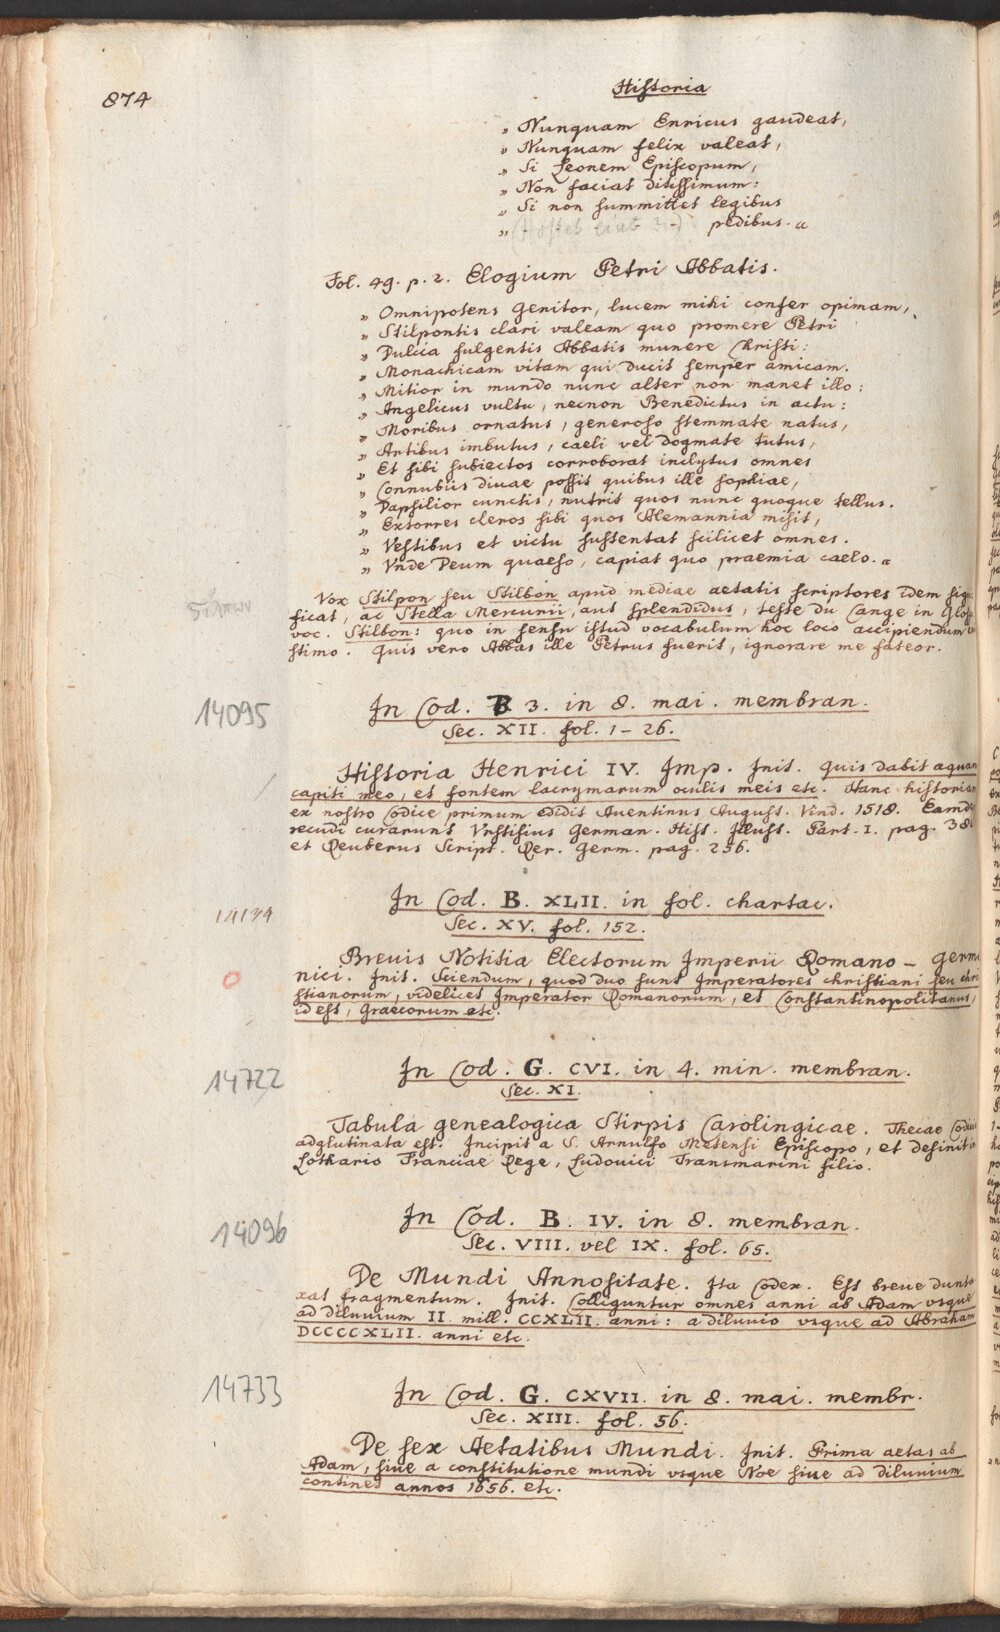 874
Historia
„ Nunquam Enricus gaudeat,
„ Nunquam felix valeat,
„ Si Leonem Episcopum,
„ Non faciat ditissimum:
„ Si non summittet legibus
„ pedibus. „
Fol. 49. p. 2. Elogium Petri Abbatis.
„ Omnipotens Genitor, lucem mihi confer opimam,
„ Stilpontis clari valeam quo promere Petri
„ Dulcia fulgentis Abbatis munere Christi:
„ Monachicam vitam qui ducit semper amicam.
„ Mitior in mundo nunc alter non manet illo:
„ Angelicus vultu, necnon Benedictus in actu:
„ Moribus ornatus, generoso stemmate natus,
„ Artibus imbutus, caeli vel dogmate tutus,
„ Et sibi subiectos corroborat inclytus omnes
„ Connubiis divae possit quibus ille sophiae,
„ Dapsilior cunctis, nutrit quos nunc quoque tellus.
„ Extorres cleros sibi quos Alemannia misit,
„ Vestibus et victu sustentat scilicet omnes.
„ Vnde Deum quaeso, capiat quo praemia caelo. „
Vox Stilpon seu Stilbon apud mediae aetatis scriptores idem sig
ficat, ac Stella Mercurii, aut splendidus, teste du Cange in Gloss
voc. Stilbon: quo in sensu istud vocabulum hoc loco accipiendum
stimo. Quis vero Abbas ille Petrus fuerit, ignorare me fateor.
14095
In Cod. B 3. in 8. mai. membran.
Sec. XII. fol. 1-26.
Historia Henrici IV. Imp. Init. Quis dabit aquam
capiti meo, et fontem lacrymarum oculis meis etc. Hanc historiam
ex nostro Codice primum edidit Auentinus August. Vind. 1518. Eamde
recudi curarunt Vrstisius German. Hist. Illust. Part. I. pag. 38
et Reuberus Script. Rer. Germ. pag. 256.
14134
In Cod. B. XLII. in fol. chartac.
Sec. XV. fol. 152.
Breuis Notitia Electorum Imperii Romano-Germa
nici. Init. Sciendum, quod duo sunt Imperatores christiani seu chri
stianorum, videlicet Imperator Romanorum, et Constantinopolitanus,
id est, Graecorum etc.
14722
In Cod. G. CVI. in 4. min. membran.
Sec. XI.
Tabula genealogica Stirpis Carolingicae. Thecae Codicis
adglutinata est. Incipit a S. Arnulfo Metensi Episcopo, et definit in
Lothario Franciae Rege, Ludouici Transmarini filio.
14096
In Cod. B. IV. in 8. membran.
Sec. VIII. vel IX. fol. 65.
De Mundi Annositate. Ita Codex. Est breue dunta
xat fragmentum. Init. Colliguntur omnes anni ab Adam vsque
ad diluuium II. mill. CCXLII. anni: a diluuio vsque ad Abraham
DCCCCXLII. anni etc.
14733
In Cod. G. CXVII. in 8. mai. membr.
Sec. XIII. fol. 56.
De sex Aetatibus Mundi. Init. Prima aetas ab
Adam, siue a constitutione mundi vsque Noe siue ad diluuium
continet annos 1656. etc.